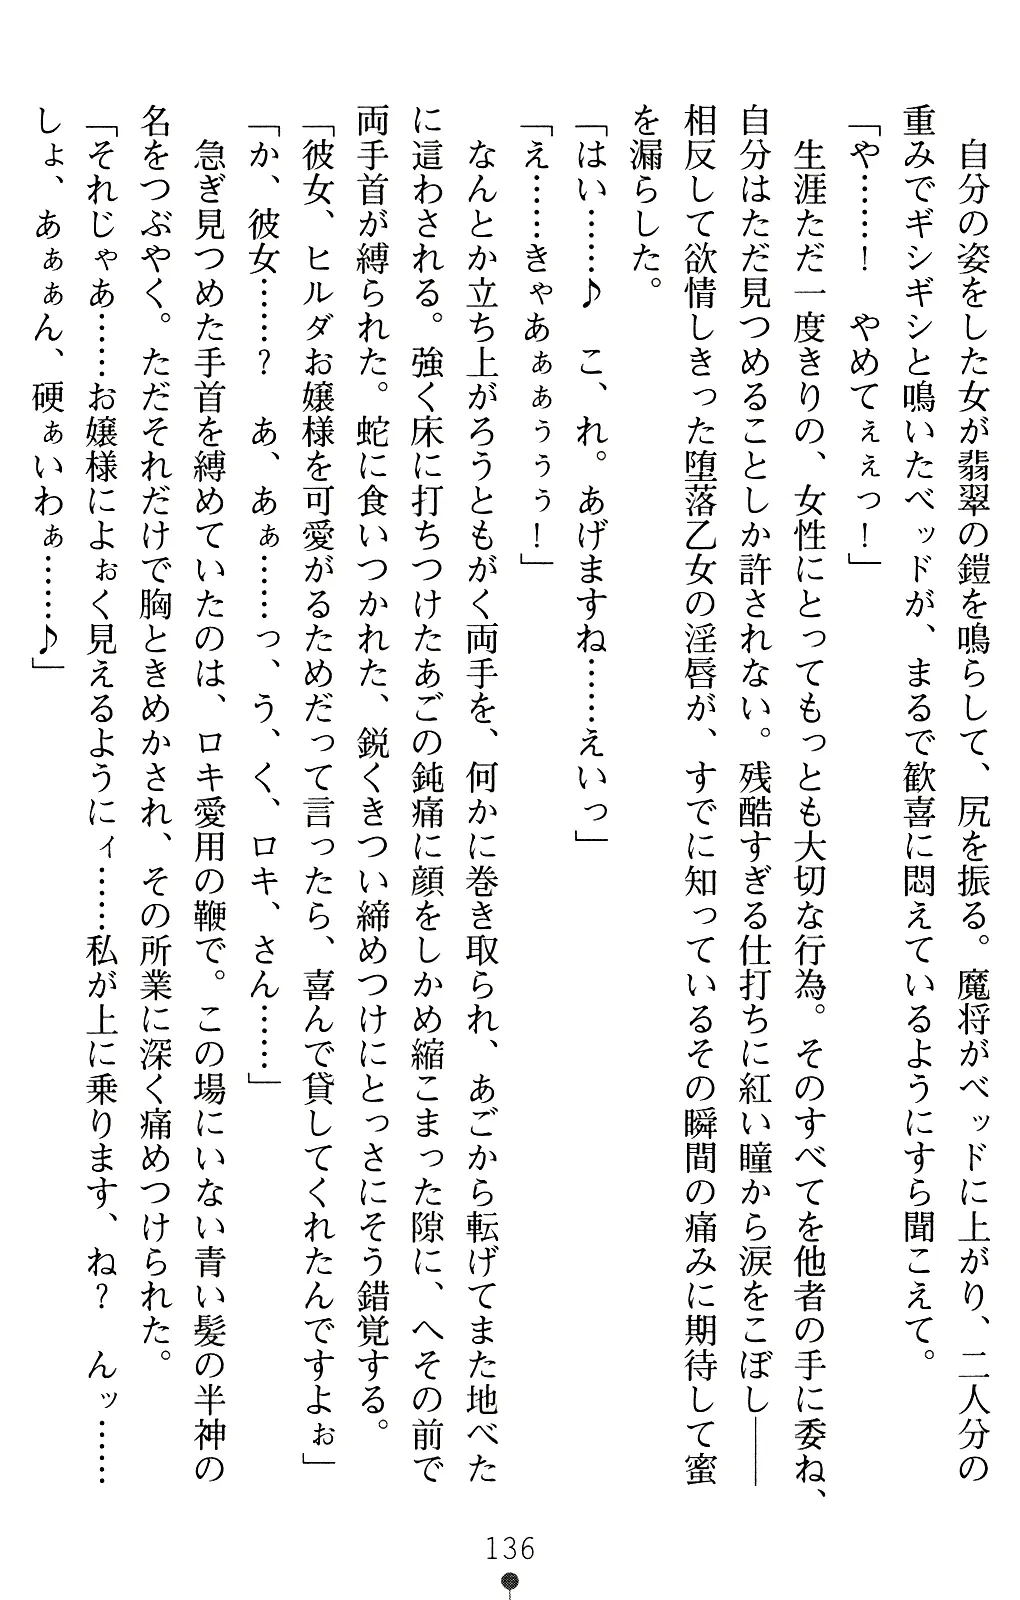 自分の姿をした女が翡翠の鎧を鳴らして、尻を振る。魔将がベッドに上がり、二人分の
重みでギシギシと鳴いたベッドが、まるで歓喜に悶えているようにすら聞こえて。
「や……！　やめてぇぇっ！」
生涯ただ一度きりの、女性にとってもっとも大切な行為。そのすべてを他者の手に委ね、
自分はただ見つめることしか許されない。残酷すぎる仕打ちに紅い瞳から涙をこぼし――
相反して欲情しきった堕落乙女の淫唇が、すでに知っているその瞬間の痛みに期待して蜜
を漏らした。
「はい……♪　こ、れ。あげますね……えいっ」
「え……きゃあぁぁぅぅぅ！」
なんとか立ち上がろうともがく両手を、何かに巻き取られ、あごから転げてまた地べた
に這わされる。強く床に打ちつけたあごの鈍痛に顔をしかめ縮こまった隙に、へその前で
両手首が縛られた。蛇に食いつかれた、鋭くきつい締めつけにとっさにそう錯覚する。
「彼女、ヒルダお嬢様を可愛がるためだって言ったら、喜んで貸してくれたんですよぉ」
「か、彼女……？　あ、あぁ……っ、う、く、ロキ、さん……」
急ぎ見つめた手首を縛めていたのは、ロキ愛用の鞭で。この場にいない青い髪の半神の
名をつぶやく。ただそれだけで胸ときめかされ、その所業に深く痛めつけられた。
「それじゃあ……お嬢様によぉく見えるようにィ……私が上に乗ります、ね？　んッ……
しょ、あぁぁん、硬ぁいわぁ……♪」
136